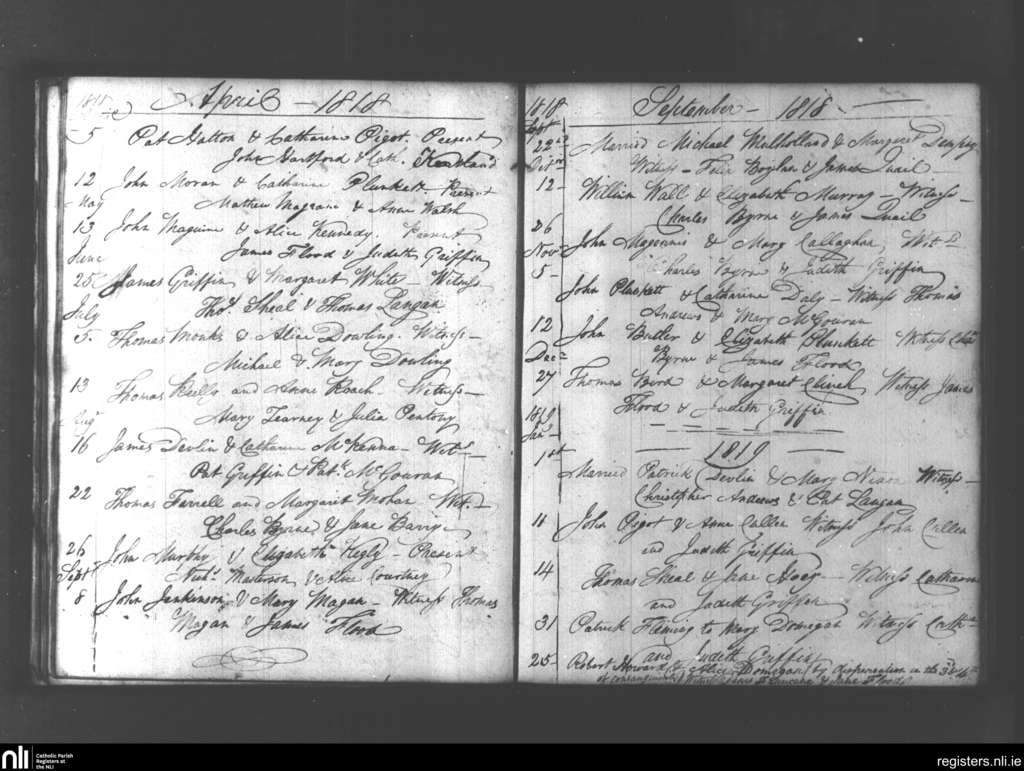 1818 April - 1818
5 Pat Hatton & Catharine Pigot. Present
John Hartford & Cath.
12 John Moran & Catharine Plunkett - Present
Mathew Magrane & Anne Walsh
May
13 John Maguire & Alice Kennedy. Present
James Flood & Judith Griffin
June
25 James Griffin & Margaret White - Witness
Thos. Sheal & Thomas Langan
July
5. Thomas Monks & Alice Dowling. Witness -
Michael & Mary Dowling
13 Thomas Kells and Anne Roach - Witness -
Mary Tearney & Julia Pentony
Augt
16 James Devlin & Catharine McKenna - Wits. -
Pat Griffin & Patk. McGouran
22 Thomas Farrell and Margaret Mohan Wit. -
Charles Byrne & Jane Barry -
26 John Murphy & Elizabeth - Present
Nichs. Masterson & Alice Courtney
Sept
8 John Jenkinson & Mary Magan - Witness Thomas
Magan & James Flood
1818 September - 1818
Sept
22nd Married Michael Mulholland & Margaret Dempsy
Witness - Felix Boylan & James Quail -
Octr
12 - William Wall & Elizabeth Murray - Witness -
Charles Byrne & James Quail
26 John Magennis & Mary Callaghan, Wits
Charles Byrne & Judith Griffin
Nov
5 - John Plunkett & Catharine Daly - Witness Thomas
Andrews & Mary McGouran
12 John Butler & Elizabeth Plunkett Witness Chas
Byrne & James Flood
Decr
27 Thomas Bird & Margaret Witness James
Flood & Judith Griffin
1819
Jany - 1819
1st Married Patrick Devlin & Mary Witness -
Christopher Andrews & Pat Langan
11 John Pigot & Anne Cullen Witness John Cullen
and Judith Griffin
14 Thomas Sheal & Jane - Witness Catharine
and Judith Griffin
31 Patrick Fleming to Mary Donegan Witness Cath
and Judith Griffin
25 - Robert Howard to Alice Donegan by dispensation in the 3d & 4th
of consanguinity Witness & Jane Flood
nli
Catholic Parish
Registers at
the NLI
registers.nli.ie